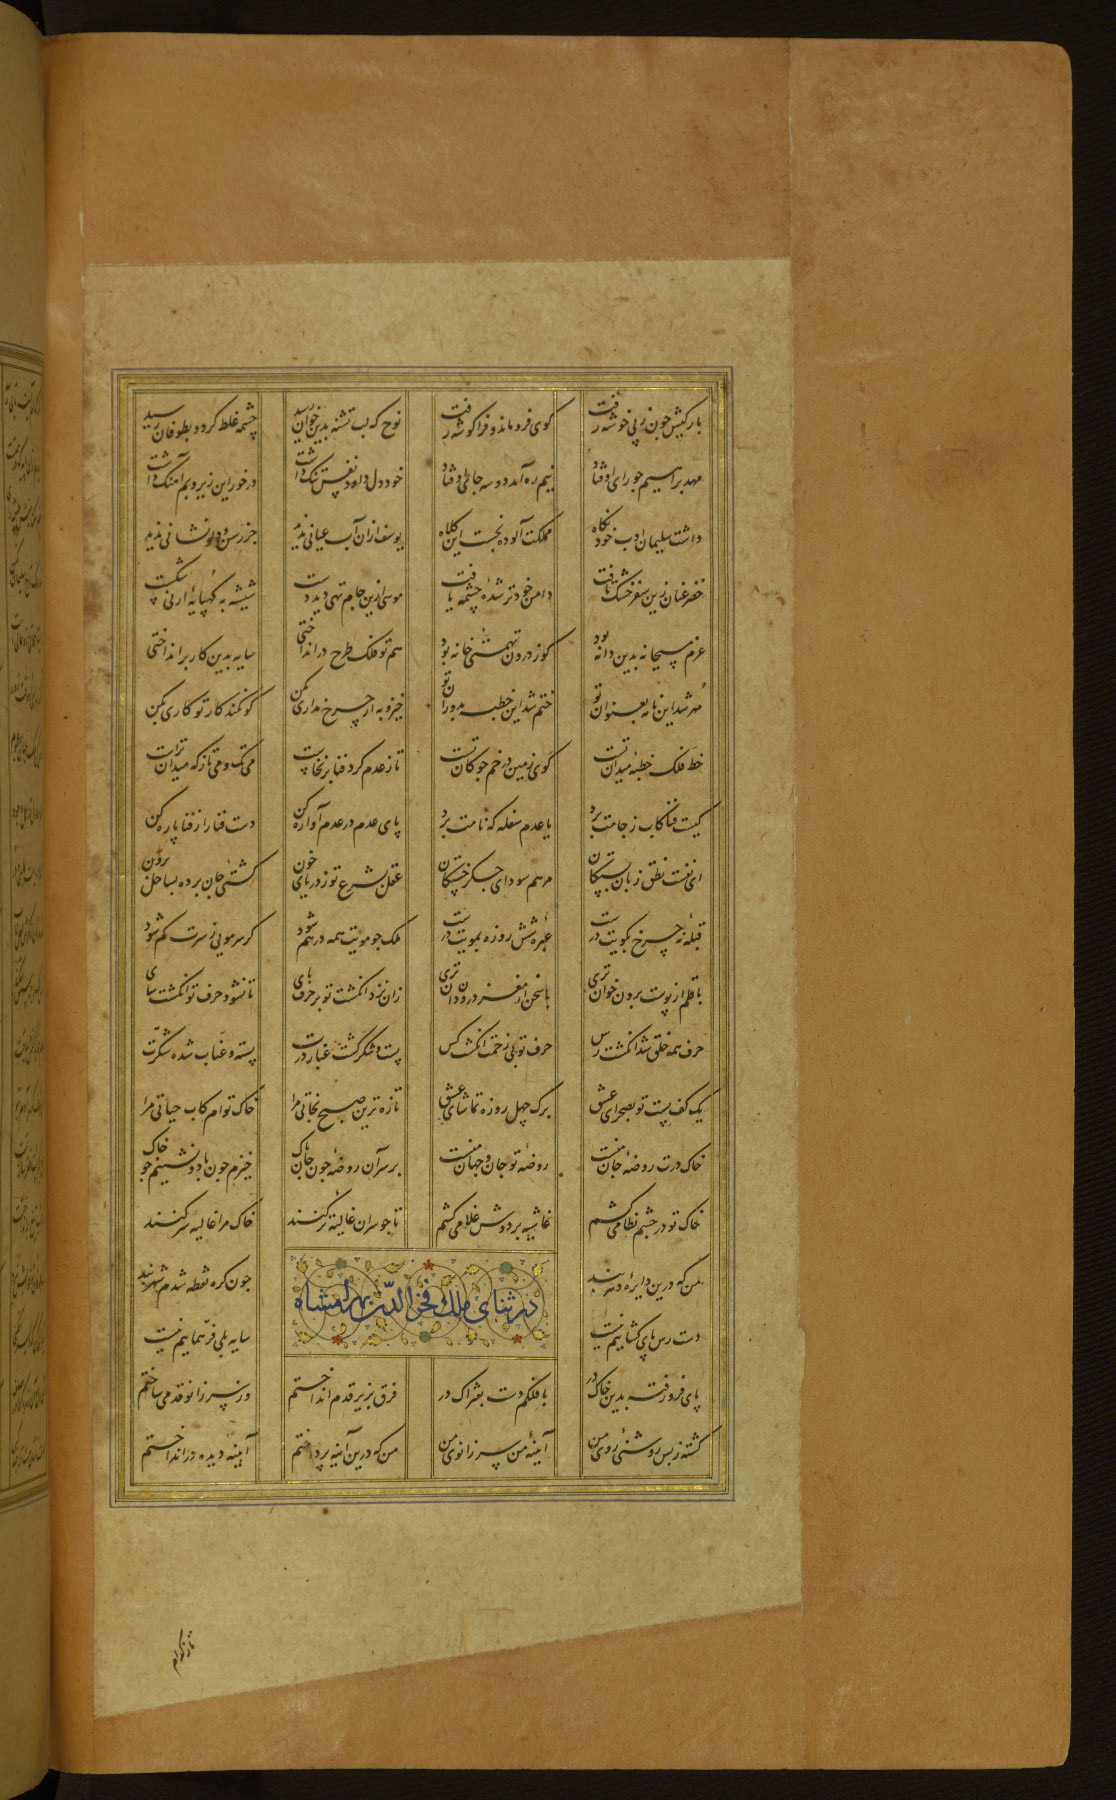 بارکیش جون ز پی خوشه رفت کوی فرو ماند و فرا کوشه رفت نوح که لب تشنه بدین خوان رسید چشمه غلط کرد و بطوفان رسید
مهد براهیم جو رای اوفتاد نیم ره آمد دو سه جای اوفتاد خود دل داود نفس تنک داشت در خور این زیر و بم آهنک داشت
داشت سلیمان ادب خود نکاه مملکت آلوده نجست این کلاه یوسف ازان آب عیانی ندید جز رسن و دلو نشانی ندید
خضر عنان زین سفر خشک تافت دامن خود تر شده چشمه یافت موسی ازین جام تهی دید دست شیشه به کهپایه ارنی شکست
عزم مسیحا نه بدین دانه بود کو ز درون تهمتی خانه بود هم تو فلک طرح در انداختی سایه بدین کار بر انداختی
مهر شد این نامه بعنوان تو ختم شد این خطبه بدوران تو خیز و به از چرخ مداری بکن کو نکند کار تو کاری بکن
خط فلک خطه میدان تست کوی زمین در خم جوکان تست تا ز عدم کرد فنا برنخاست می تک و می تاز که میدان تراست
کیست فنا کاب ز جامت برد یا عدم سفله که نامت برد پای عدم در عدم آواره کن دست فنا را ز فنا پاره کن
ای نفست نطق زبان بستکان مرهم سودای جکر خستکان عقل بشرع تو ز دریای خون کشتی جان برده بساحل برون
قبله نه چرخ بکویت درست عبره شش روزه بمویت درست ملک جو مویت همه درهم شود کر سر مویی ز سرت کم شود
با قلم از پوست برون خوان تری با سخن از مغز درون دان تری زان نزد انکشت تو بر حرف پای تا نشود حرف تو انکشت سای
حرف همه خلق شد انکشت رس حرف تو بی زحمت انکشت کس پست شکر کشت غبار درت پسته و عناب شده شکرت
یک کف پست تو بصحرای عشق برک چهل روزه تماشای عشق تازه ترین صبح نجاتی مرا خاک توام کاب حیاتی مرا
خاک درت روضه جان منست روضه تو جان و جهان منست بر سر آن روضه جون جان پاک خیزم جون باد و نشینم جو خاک
خاک تو در چشم نظامی کشم غاشیه بر دوش غلامی کشم تا جو سران غالیه تر کنند خاک مرا غالیه سر کنند
در ثنای ملک فخر الدین بهرامشاه
من که درین دایره دهربند جون کره نقطه شدم شهربند
دست رس پای کشاییم نیست سایه ولی فر هماییم نیست
پای فرو رفته بدین خاک در با فلکم دست بفتراک در فرق بزیر قدم انداختم وز سر زانو قدمی ساختم
کشته ز بس روشنی روی من آینه من سر زانوی من من که درین آینه پرداختم آینه دیده در انداختم
تا ز کدام